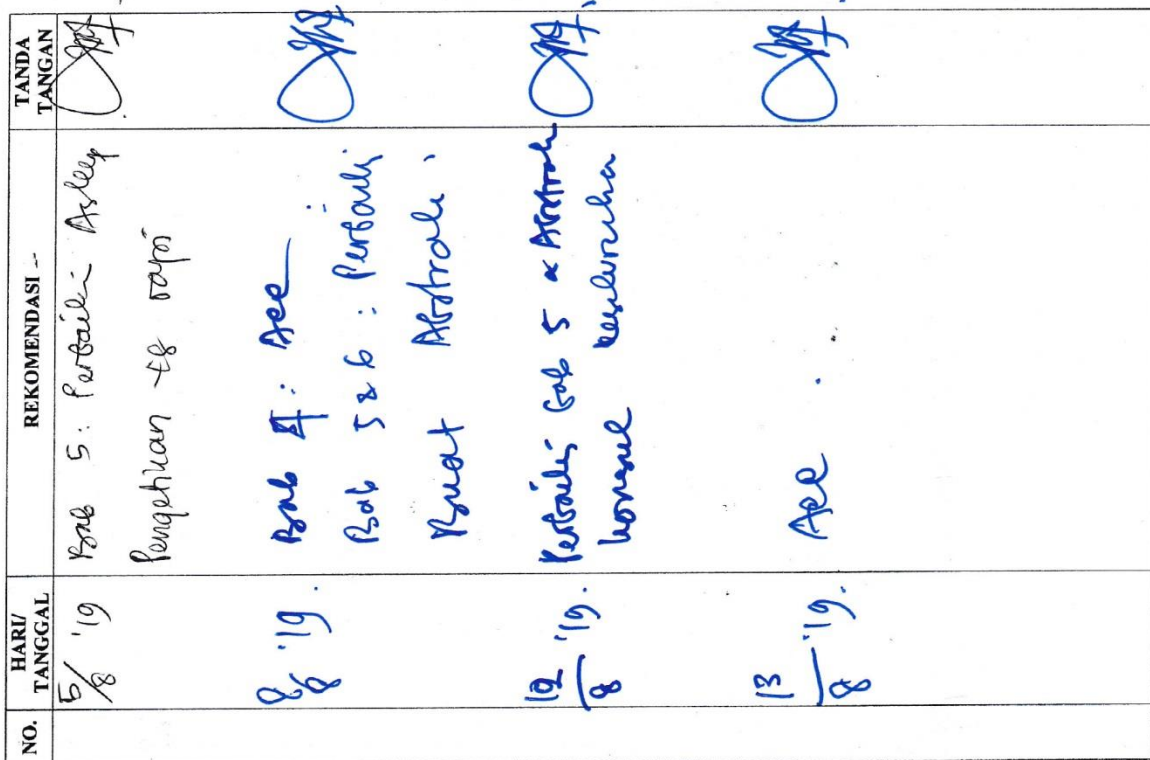 NO.
HARI/
TANGGAL
REKOMENDASI
TANDA
TANGAN
5/8 '19
Bab 5: Perbaiki Askep
Pengetikan yg rapi
8/8 '19.
Bab 4: Acc
Bab 5 & 6: Perbaiki
Buat Abstrak
12/8 '19.
Perbaiki bab 5 & Abstrak
konsul keseluruhan
13/8 '19.
Acc.